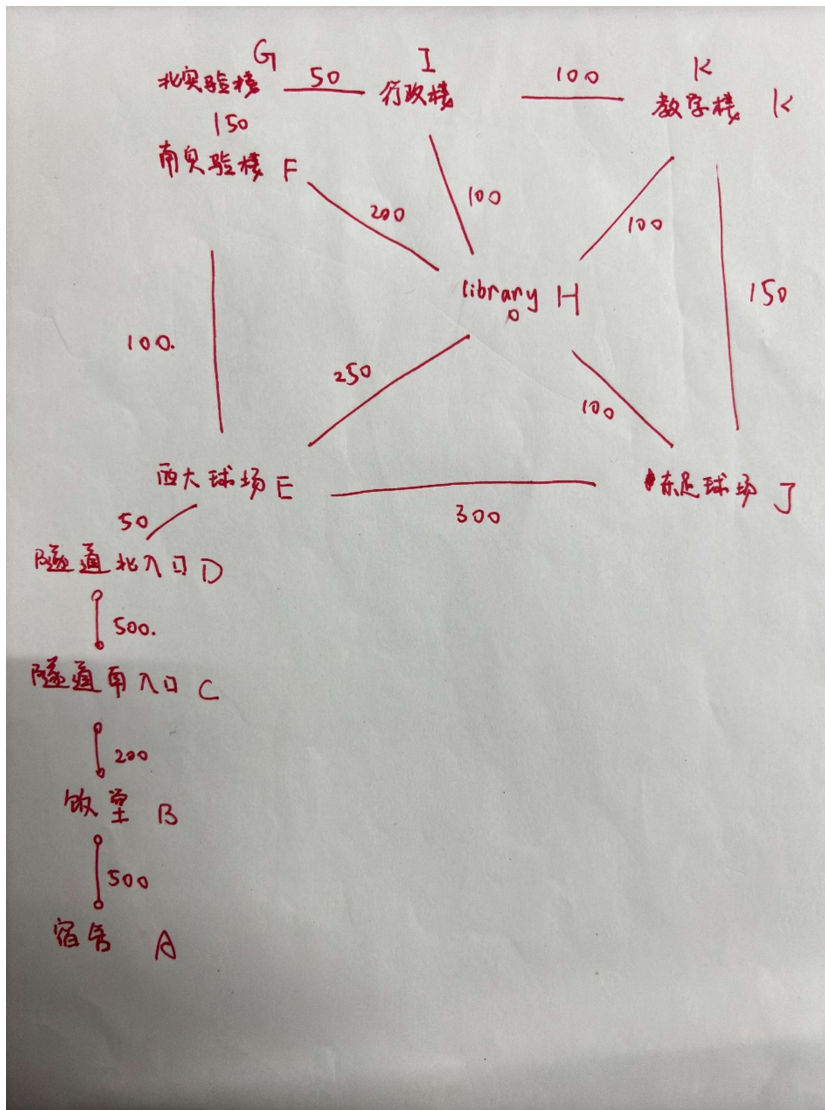 G I K
北实验楼 50 行政楼 100 教学楼 K
150
南实验楼 F
200 100 100
library H 150
100.
250 100
西大球场 E 300 东足球场 J
50
隧道北入口 D
500.
隧道南入口 C
200
饭堂 B
500
宿舍 A